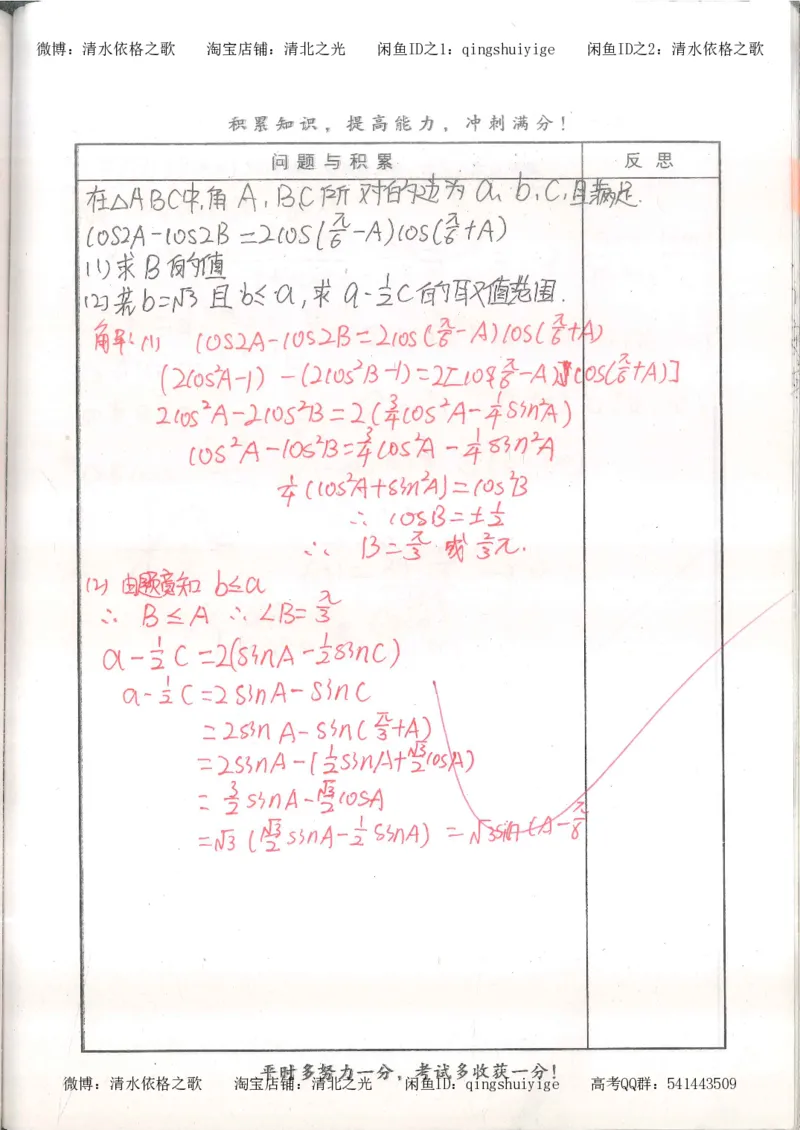 微博：清水依格之歌 淘宝店铺：清北之光 闲鱼ID之1：qingshuiyige 闲鱼ID之2：清水依格之歌
积累知识，提高能力，冲刺满分！
问题与积累 反思
在△ABC中,角A,B,C所对的边为a,b,c,且满足.
cos2A-cos2B=2cos(π/6-A)cos(π/6+A)
(1)求B的值
(2)若b=√3且b≤a,求a-1/2c的取值范围.
解:(1) cos2A-cos2B=2cos(π/6-A)cos(π/6+A)
(2cos²A-1)-(2cos²B-1)=2[cos(π/6-A)cos(π/6+A)]
2cos²A-2cos²B=2(3/4cos²A-1/4sin²A)
cos²A-cos²B=3/4cos²A-1/4sin²A
1/4(cos²A+sin²A)=cos²B
∴ cosB=±1/2
∴ B=π/3或2/3π.
(2)由题意知b≤a
∴ B≤A ∴∠B=π/3
a-1/2c=2(sinA-1/2sinC)
a-1/2c=2sinA-sinC
=2sinA-sin(π/3+A)
=2sinA-(1/2sinA+√3/2cosA)
=3/2sinA-√3/2cosA
=√3(√3/2sinA-1/2sinA)=√3sin(A-π/8
平时多努力一分，考试多收获一分！
微博：清水依格之歌 淘宝店铺：清北之光 闲鱼ID：qingshuiyige 高考QQ群：541443509